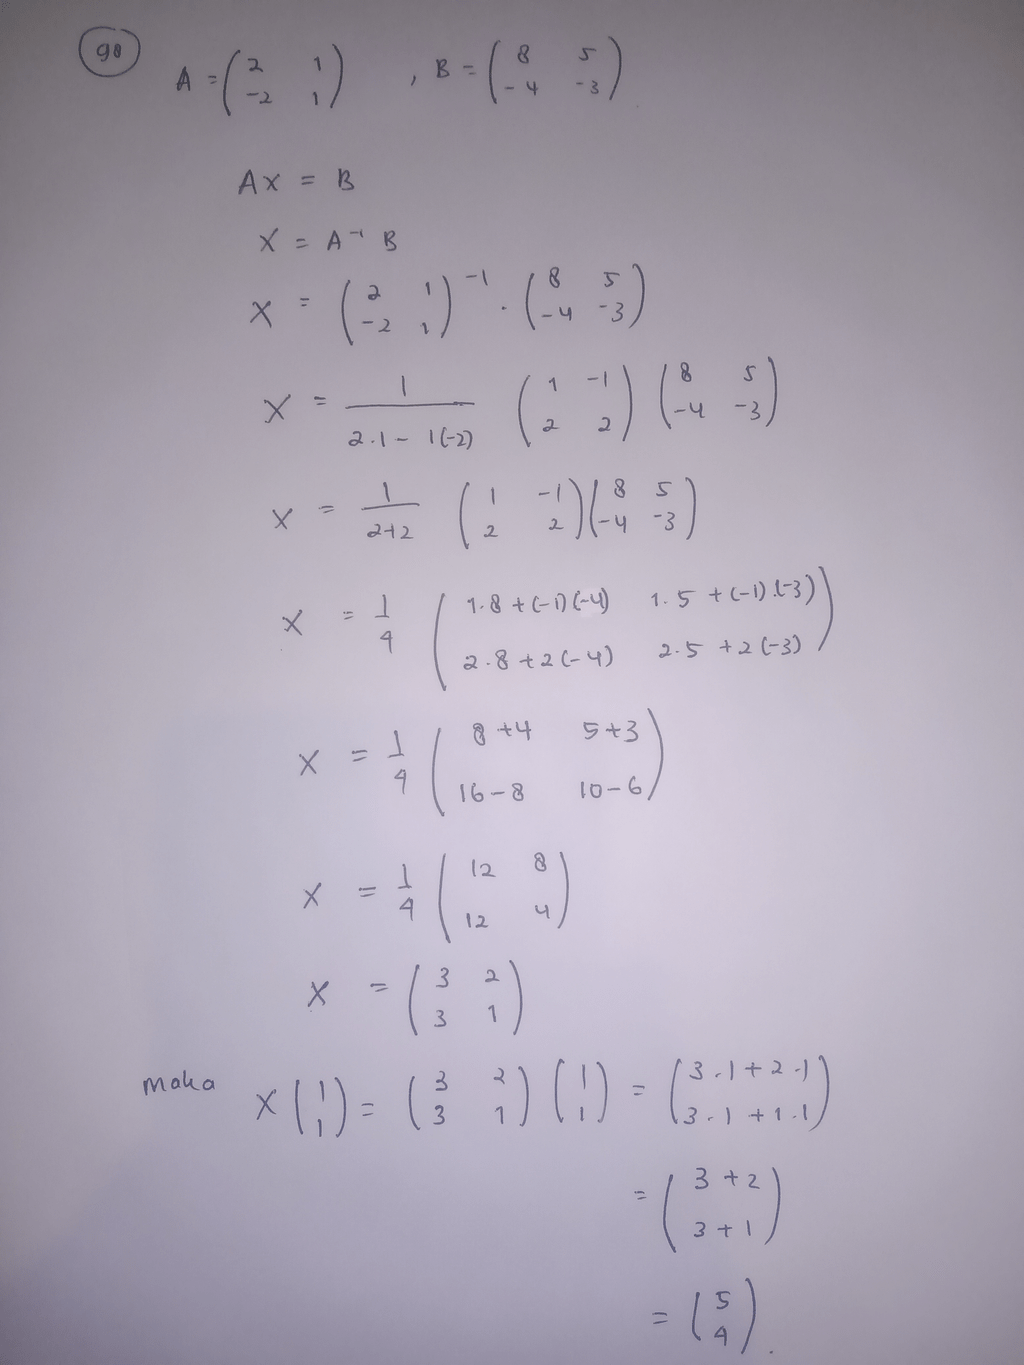 98 A = ( 2 1 ; -2 1 ) , B = ( 8 5 ; -4 -3 )
AX = B
X = A⁻¹ B
X = ( 2 1 ; -2 1 )⁻¹ . ( 8 5 ; -4 -3 )
X = 1 / (2.1 - 1(-2)) ( 1 -1 ; 2 2 ) ( 8 5 ; -4 -3 )
X = 1 / (2+2) ( 1 -1 ; 2 2 ) ( 8 5 ; -4 -3 )
X = 1/4 ( 1.8 + (-1)(-4) 1.5 + (-1).(-3) ; 2.8 + 2(-4) 2.5 + 2(-3) )
X = 1/4 ( 8+4 5+3 ; 16-8 10-6 )
X = 1/4 ( 12 8 ; 12 4 )
X = ( 3 2 ; 3 1 )
maka X ( 1 ; 1 ) = ( 3 2 ; 3 1 ) ( 1 ; 1 ) = ( 3.1 + 2.1 ; 3.1 + 1.1 )
= ( 3+2 ; 3+1 )
= ( 5 ; 4 ).